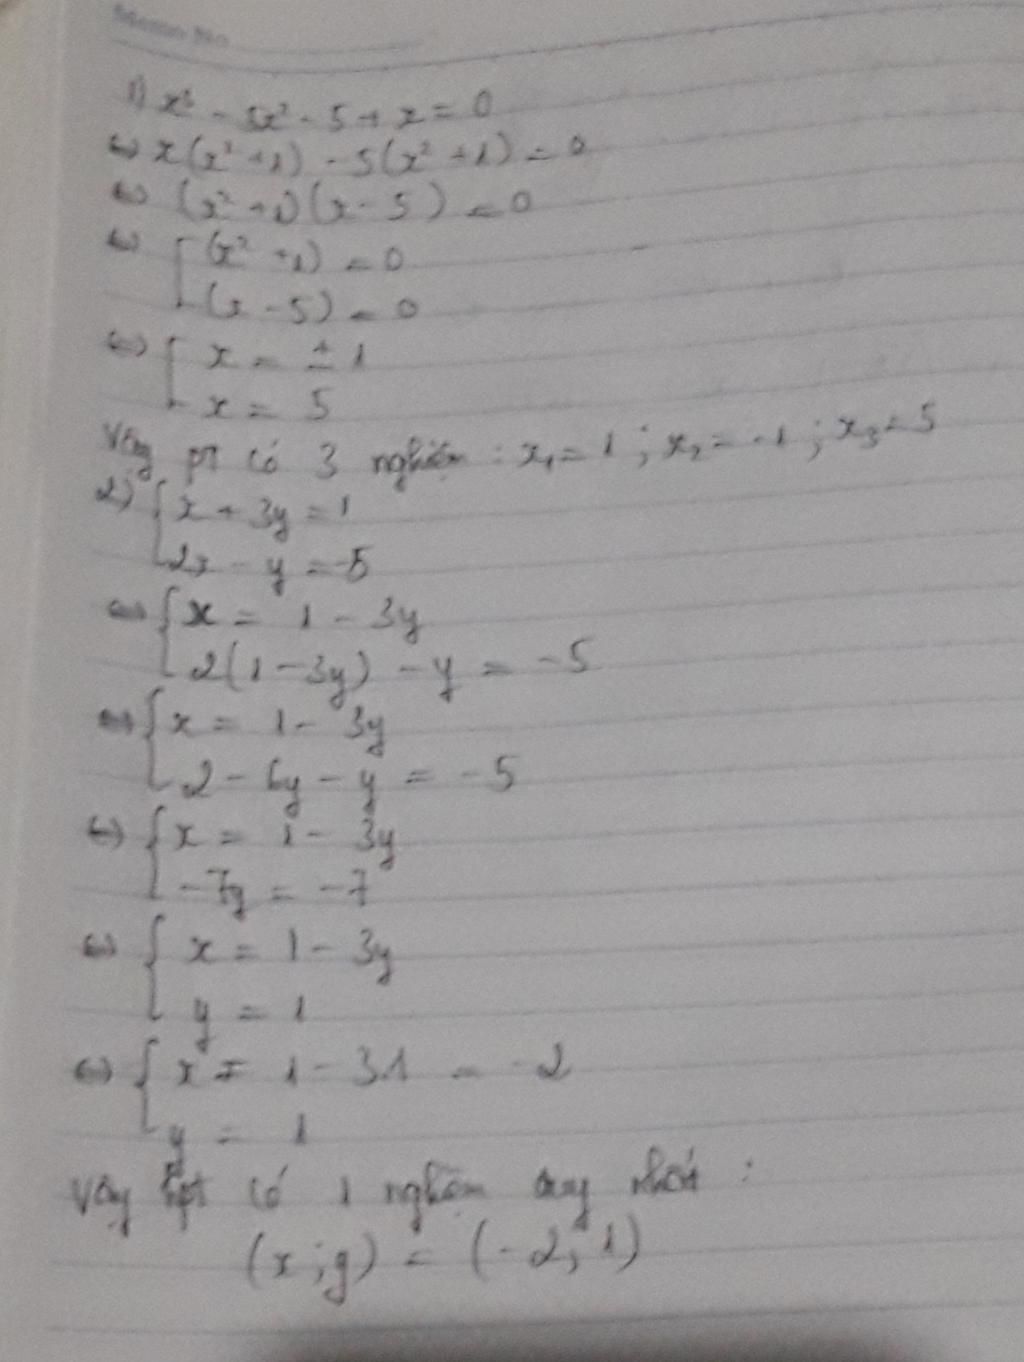 Memo No
1) x³ - 5x² - 5 + x = 0
⇔ x(x² + 1) - 5(x² + 1) = 0
⇔ (x² + 1)(x - 5) = 0
⇔ [ (x² + 1) = 0
(x - 5) = 0
⇔ [ x = ± 1
x = 5
Vậy pt có 3 nghiệm : x₁ = 1 ; x₂ = -1 ; x₃ = 5
2) { x + 3y = 1
2x - y = -5
⇔ { x = 1 - 3y
2(1 - 3y) - y = -5
⇔ { x = 1 - 3y
2 - 6y - y = -5
⇔ { x = 1 - 3y
-7y = -7
⇔ { x = 1 - 3y
y = 1
⇔ { x = 1 - 3.1 = -2
y = 1
Vậy hpt có 1 nghiệm duy nhất :
(x ; y) = (-2 ; 1)